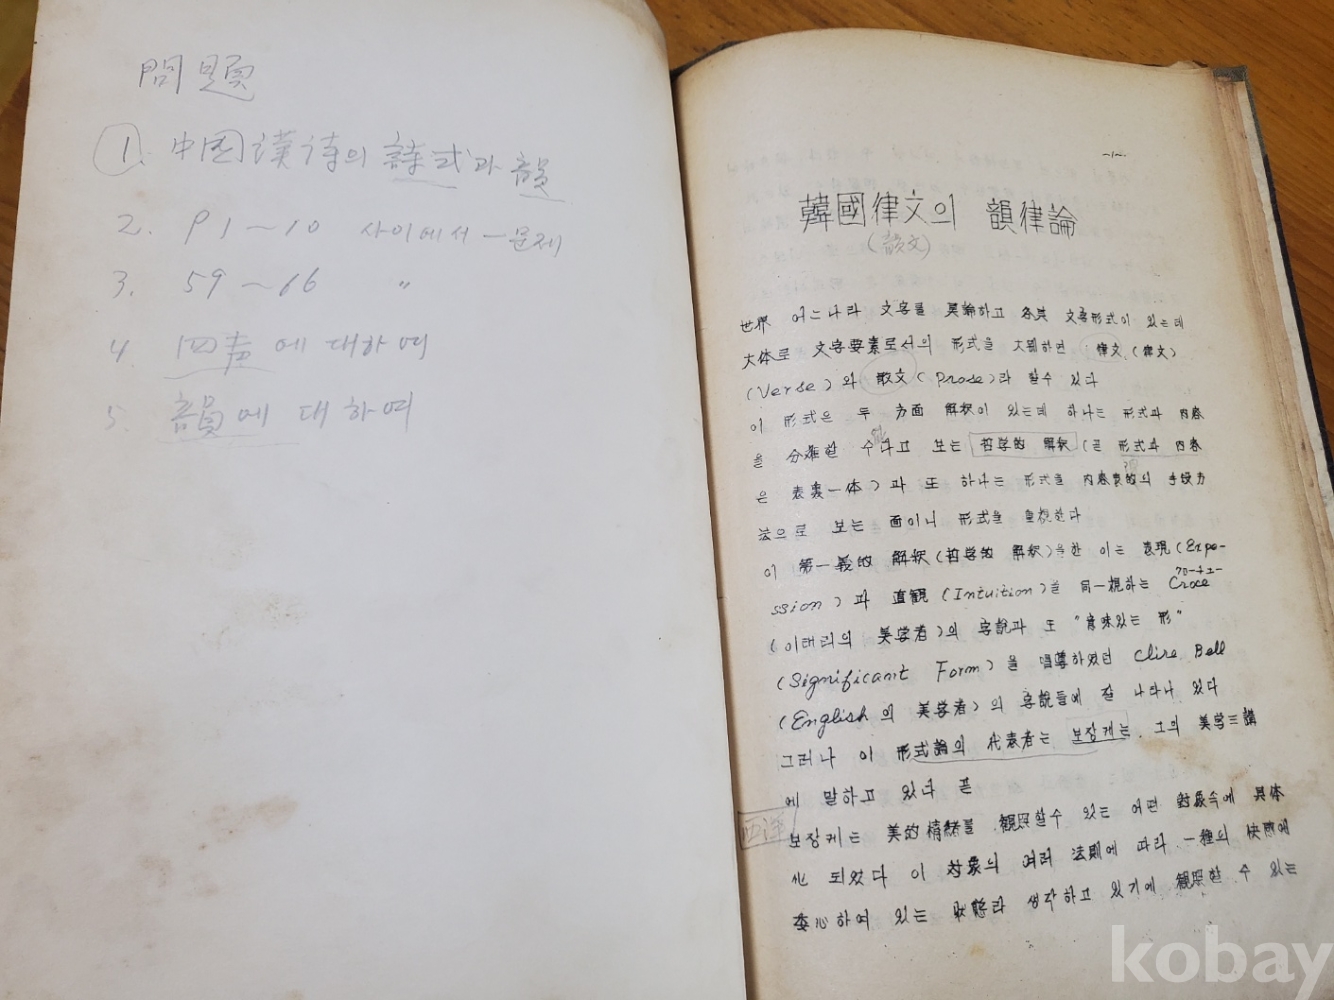 問題
1. 中国漢詩의 詩式과 韻
2. P1~10 사이에서 一문제
3. 59~66 〃
4 四声에 대하여
5 韻에 대하여
-1-
韓國律文의 韻律論
(韻文)
世界 어느나라 文字를 莫論하고 各其 文學形式이 있는데
大体로 文学要素로서의 形式을 大別하면 律文(律文)
(Verse)와 散文(Prose)라 할수 있다
이 形式은 두 方面 解釈이 있는데 하나는 形式과 内容
을 分離할 수 다고 보는 哲学的 解釈(곧 形式과 内容
은 表裏一体)과 또 하나는 形式을 内容表的의 手段方
法으로 보는 面이니 形式을 重視한다
이 第一義的 解釈(哲学的 解釈)을한 이는 表現(Expe-
ssion)과 直観(Intuition)을 同一視하는 Croce
(이태리의 美学者)의 学説과 또 "意味있는 形"
(Significant Form)을 唱導하였던 Clive Bell
(English의 美学者)의 学説들에 잘 나타나 있다
그러나 이 形式論의 代表者는 보장케는 그의 美学三講
에 말하고 있다 곧
西洋
보장케는 美的情緖를 観照할수 있는 어떤 対象속에 具体
化 되었다 이 対象의 여러 法則에 따라 一種의 快感에
하여 있는 状態라 생각하고 있기에 観照할 수 있는
kobay